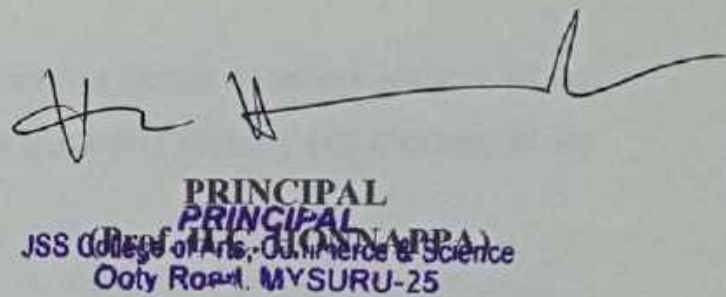 PRINCIPAL
PRINCIPAL
(Prof. H.C. HONNAPPA)
JSS College of Arts, Commerce & Science
Ooty Road, MYSURU-25